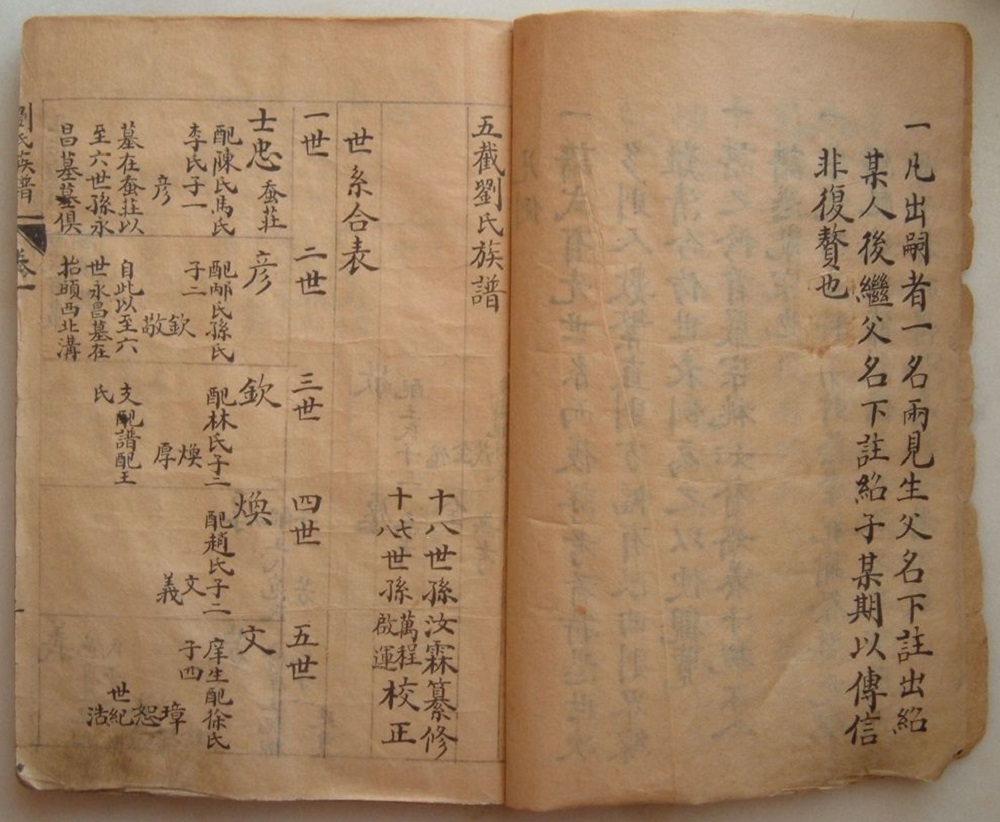 一凡出嗣者一名兩見生父名下註出紹
某人後繼父名下註紹子某期以傳信
非復贅也
五截劉氏族譜
十八世孫汝霖纂修
十七世孫萬程校正
十八世孫啟運校正
世系合表
一世
二世
三世
四世
五世
士忠
蚕莊
配陳氏馬氏
李氏子一
彦
墓在蚕莊以
至六世孫永
昌墓墓俱
彦
配邴氏孫氏
子二
欽
敬
自此以至六
世永昌墓在
抬頭西北溝
欽
配林氏子二
煥
厚
支配譜配王
氏
煥
配趙氏子二
文
義
文
庠生配徐氏
子四
璋
恕
世紀
世法
劉氏族譜
卷一